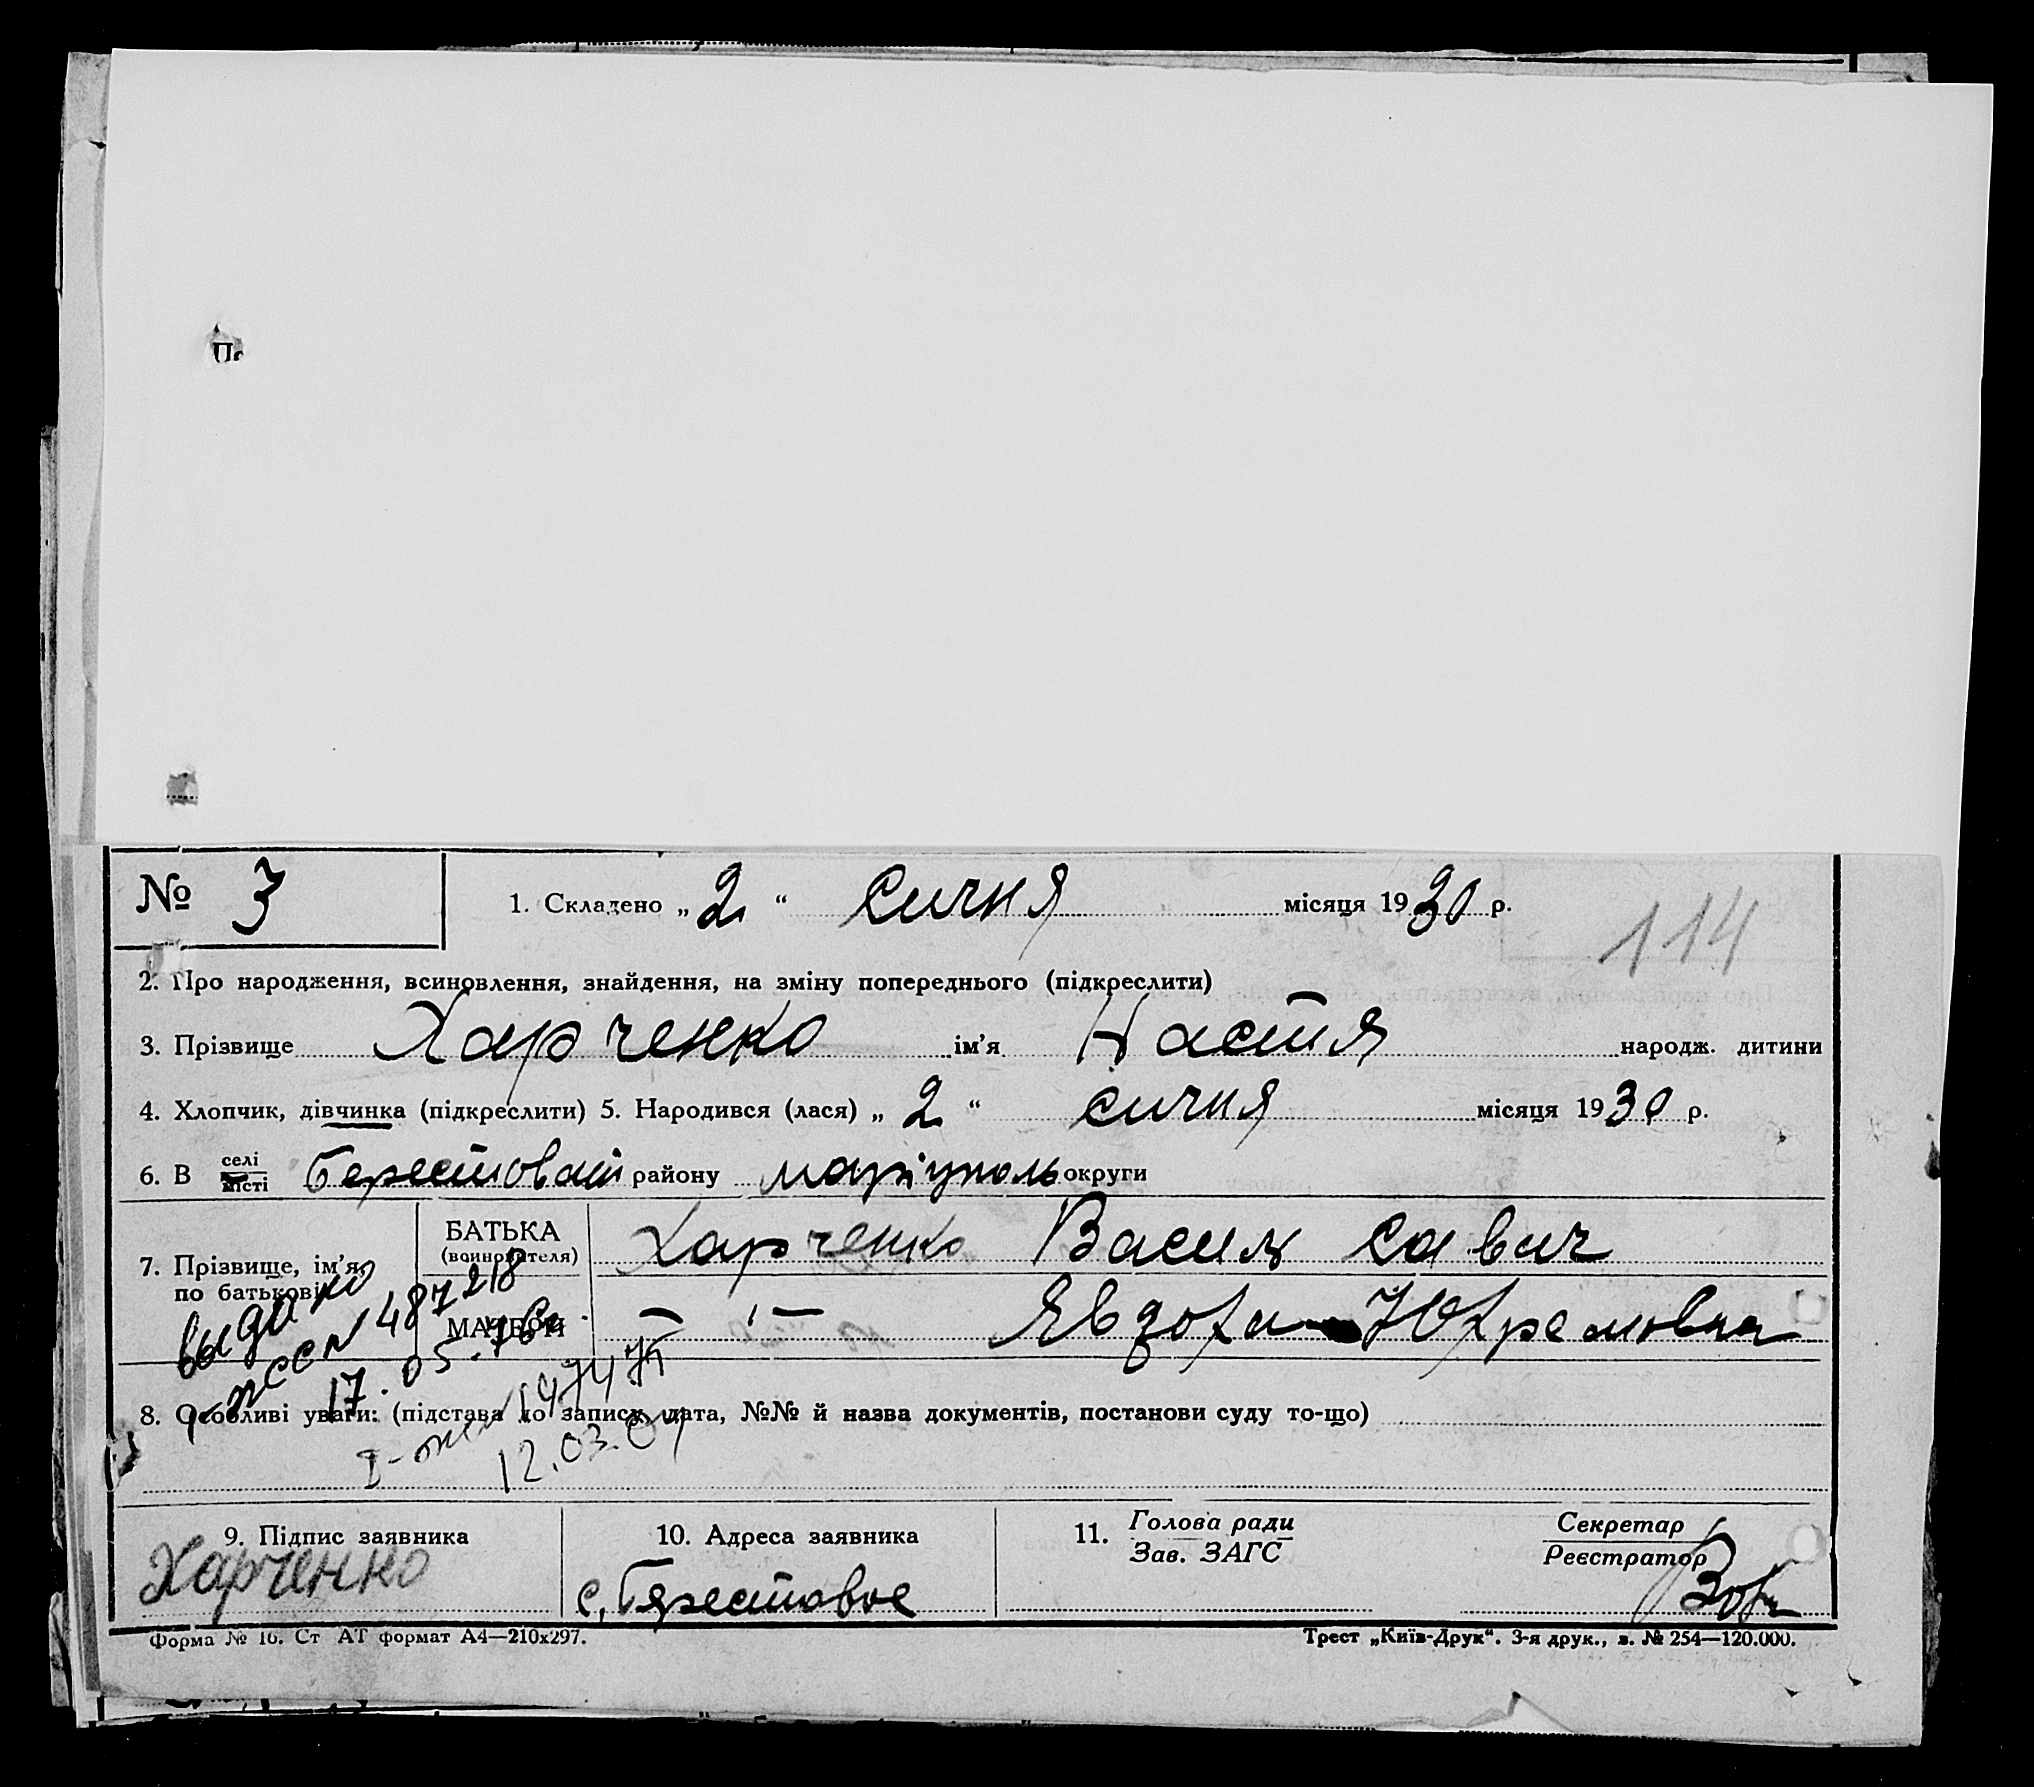 № 3
1. Складено „ 2 “ сичня місяця 1930 р.
114
2. Про народження, всиновлення, знайдення, на зміну попереднього (підкреслити)
3. Прізвище Харченко ім’я Настя народж. дитини
4. Хлопчик, дівчинка (підкреслити) 5. Народився (лася) „ 2 “ сичня місяця 1930 р.
6. В селі місті Берестоват району маріуполь округи
7. Прізвище, ім’я, по батькові
БАТЬКА Харченко Васил Савич
МАТЕРИ — ı — Явдоха
выдано
487218
17.05.
12.03.
8. Особливі уваги: (підстава до запису, дата, №№ й назва документів, постанови суду то-що)
9. Підпис заявника
Харченко
10. Адреса заявника
с. Берестовое
11. Голова ради
Зав. ЗАГС
Секретар
Реєстратор
Форма № 16. Ст АТ формат А4—210x297.
Трест „Київ-Друк“. 3-я друк., з. № 254—120.000.